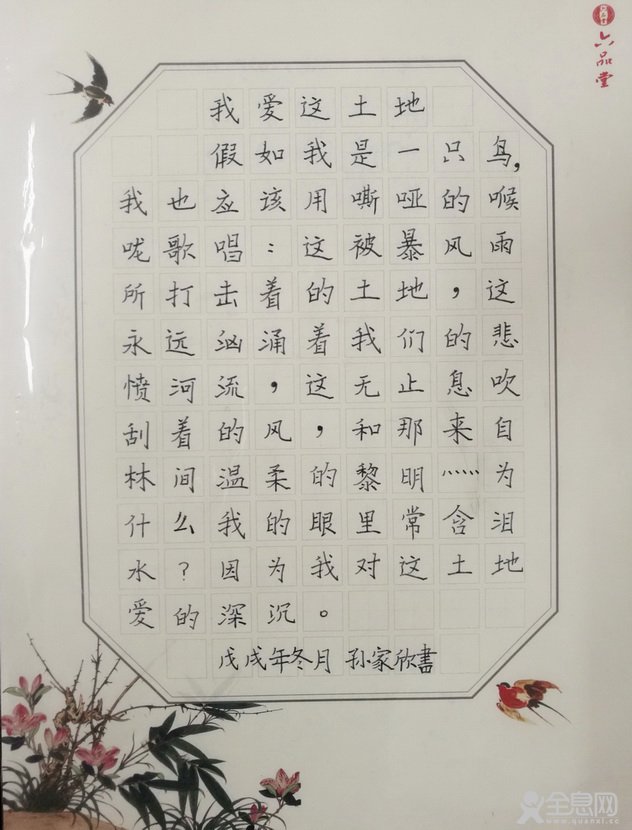 六品堂
我爱这土地
假如我是一只鸟,
我也应该用嘶哑的喉
咙歌唱：这被暴风雨
所打击着的土地，这
永远汹涌着我们的悲
愤河流，这无止息吹
刮着的风，和那来自
林间温柔的黎明……为
什么我的眼里常含泪
水?因为我对这土地
爱的深沉。
戊戌年冬月 孙家欣書
全息网
www.quanxi.cc